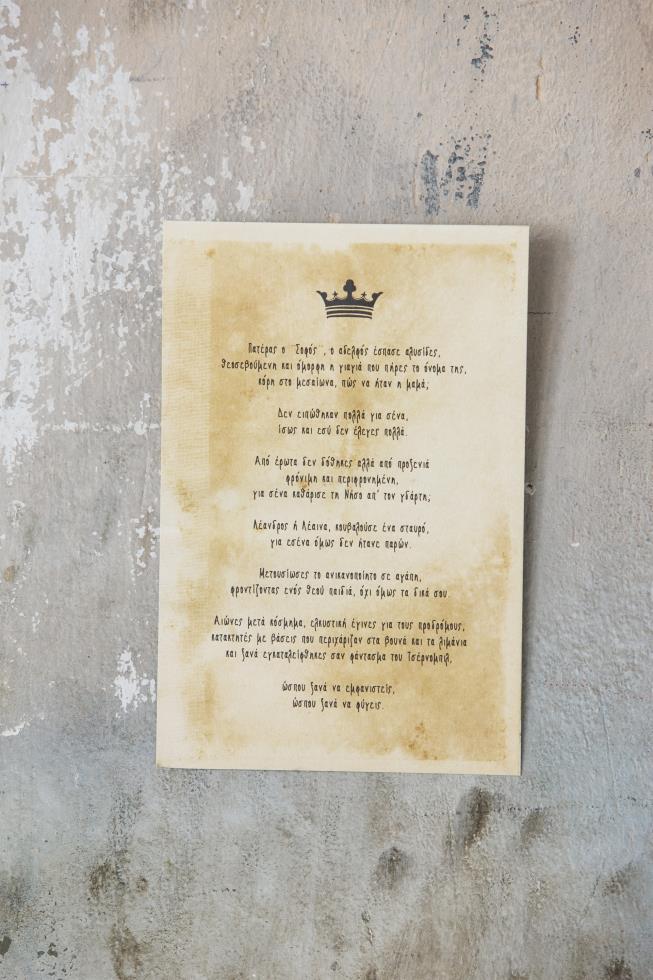 Πατέρας ο ¨Σοφός¨, ο αδελφός έσπασε αλυσίδες,
θεοσεβούμενη και όμορφη η γιαγιά που πήρες το όνομα της,
κόρη στο μεσαίωνα, πώς να ήταν η μαμά;
Δεν ειπώθηκαν πολλά για σένα,
ίσως και εσύ δεν έλεγες πολλά.
Από έρωτα δεν δόθηκες αλλά από προξενιά
φρόνιμη και περιφρονημένη,
για σένα καθάρισε τη Νήσο απ' τον γδάρτη;
Λέανδρος ή Λέαινα, κουβαλούσε ένα σταυρό,
για εσένα όμως δεν ήτανε παρών.
Μετουσίωσες το ανικανοποίητο σε αγάπη,
φροντίζοντας ενός θεού παιδιά, όχι όμως τα δικά σου.
Αιώνες μετά κόσμημα, ελκυστική έγινες για τους προδρόμους,
κατακτητές με βάσεις που περιχάριζαν στα βουνά και τα λιμάνια
και ξανά εγκαταλείφθηκες σαν φάντασμα του Τσέρνομπιλ,
ώσπου ξανά να εμφανιστείς,
ώσπου ξανά να φύγεις.